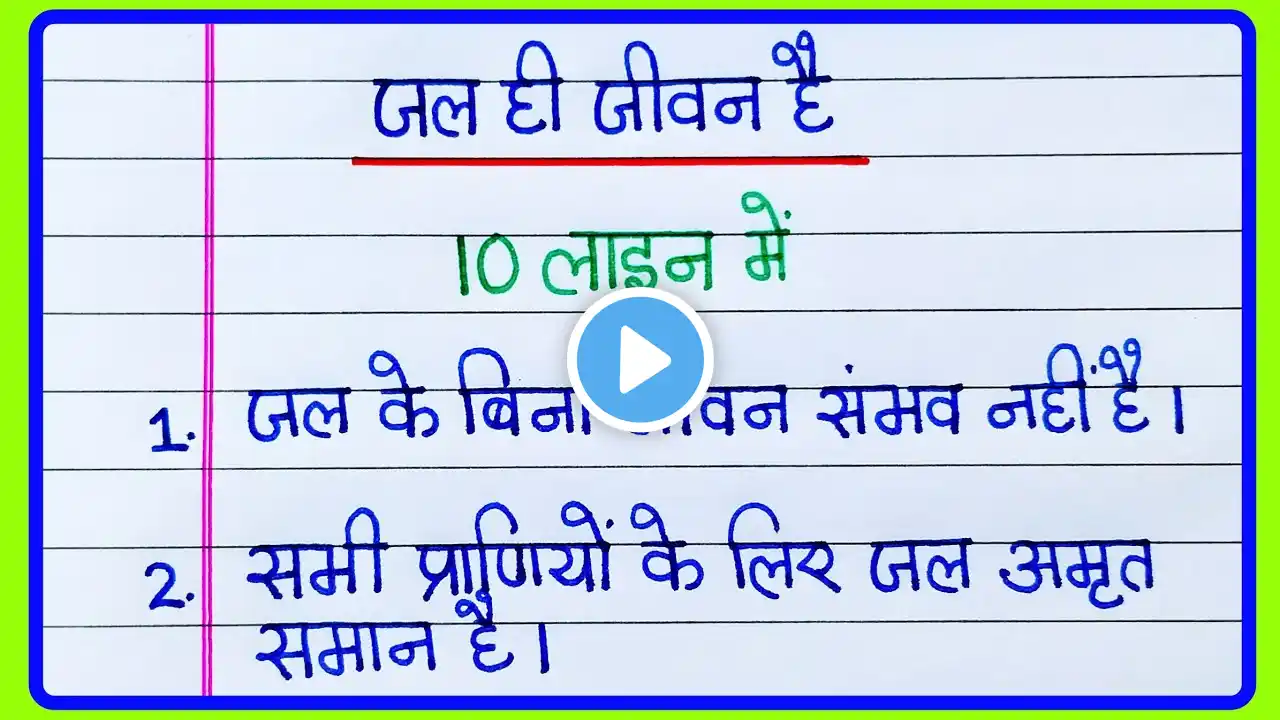 जल ही जीवन है
10 लाइन में
1. जल के बिना वन संभव नहीं है।
2. सभी प्राणियों के लिए जल अमृत
समान है।